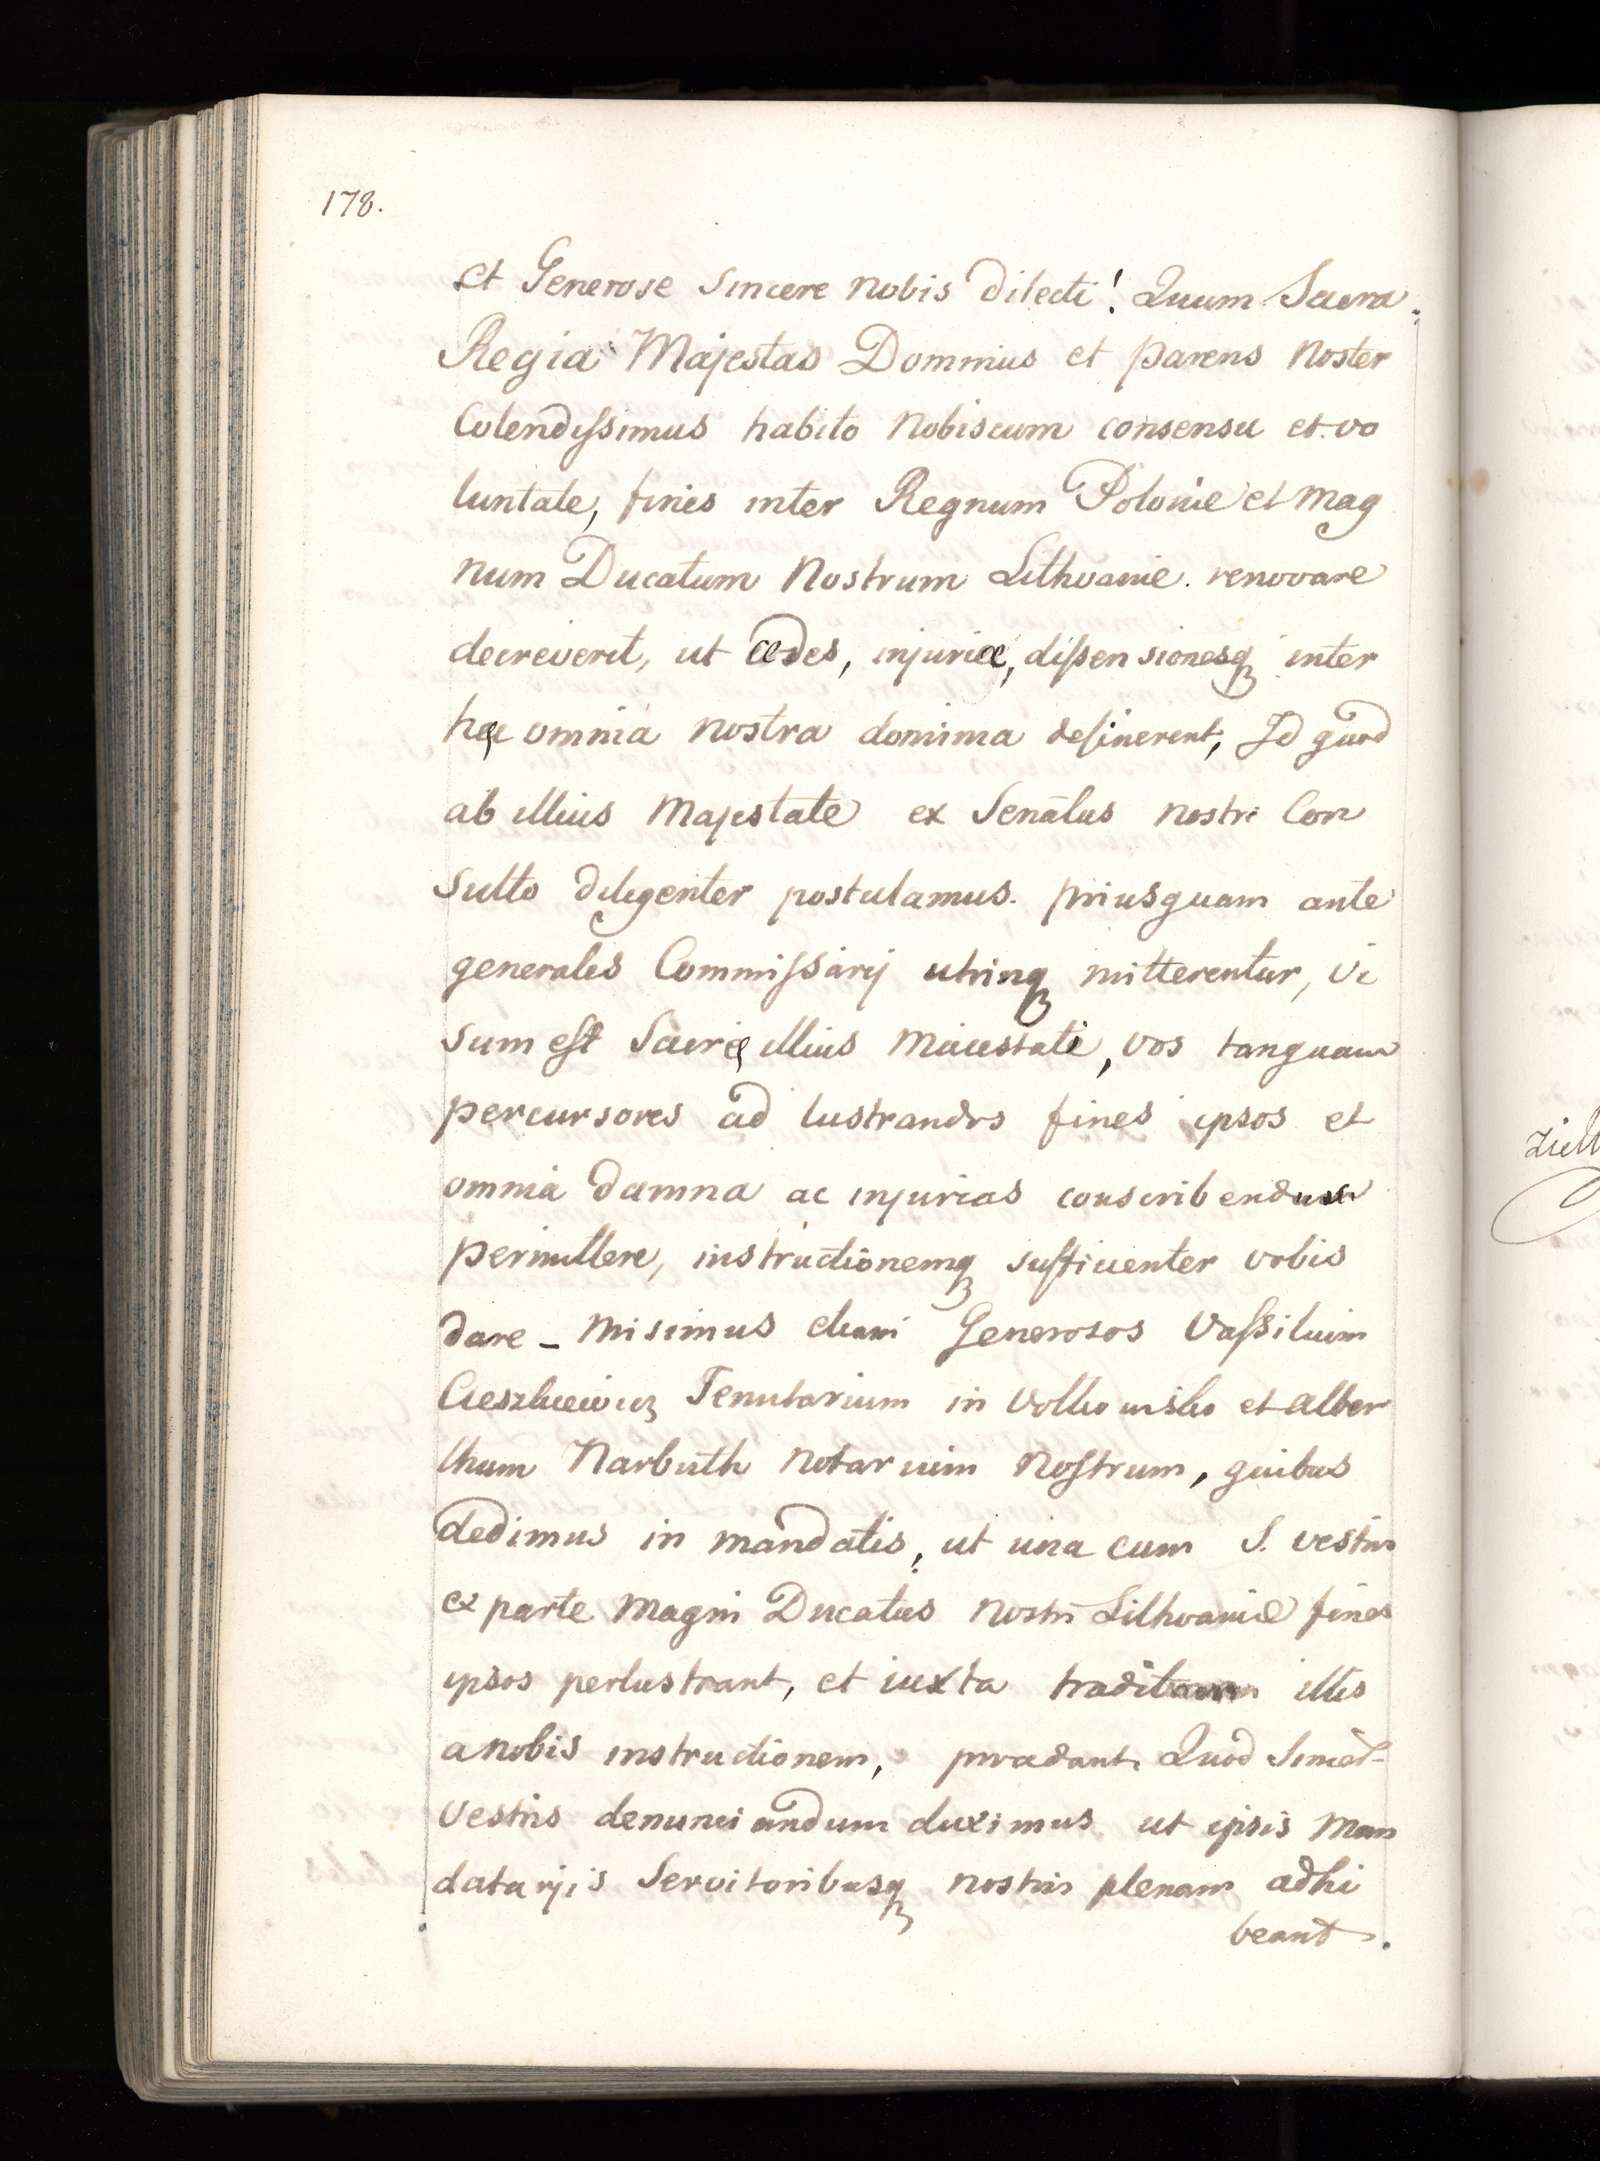 178.
et Generose sincere nobis dilecti! Quum Sacra
Regia Majestas Dominus et parens noster
Colendissimus habito nobiscum consensu et vo
luntate, fines inter Regnum Polonie et Mag
num Ducatum nostrum Lithvanie renovare
decreverit, ut cædes, injuriæ, dissensionesq inter
hæ omnia nostra dominia desinerent, Id quod
ab illius Majestate ex Senatus nostri Con
sulto diligenter postulamus. priusquam ante
generales Commissarij utrinq mitterentur, vi
sum est Sacrę illius Maiestati, vos tanquam
percursores ad lustrandos fines ipsos et
omnia damna ac injurias conscribendum
permittere, instructionemq sufficienter vobis
dare - misimus etiam Generosos Vassilium
Tenutarium in et Alber
thum Narbuth notarium nostrum, quibus
dedimus in mandatis, ut una cum S. vestris
ex parte Magni Ducatus nostri Lithvaniæ fines
ipsos perlustrant, et iuxta traditam illis
a nobis instructionem, Quod
vestris denunciandum duximus ut ipsis Man
datarijis Servitoribusq nostris plenam adhi
beant.